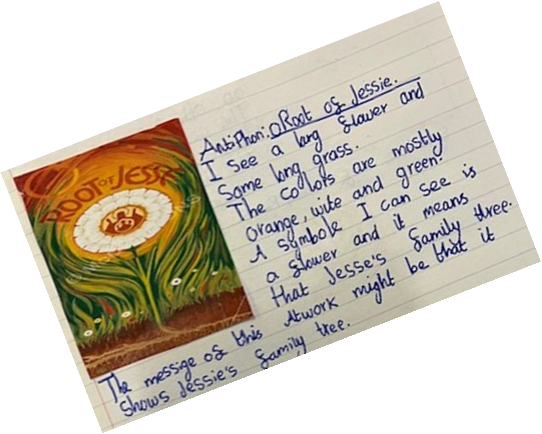 ROOT OF JESSE
AntiPhon: O Root of Jessie.
I see a larg flower and
Some long grass.
The colors are mostly
orange, wite and green.
A symbole I can see is
a flower and it means
that Jesse's family three.
The messige of this Atwork might be that it
shows Jessie's family tree.